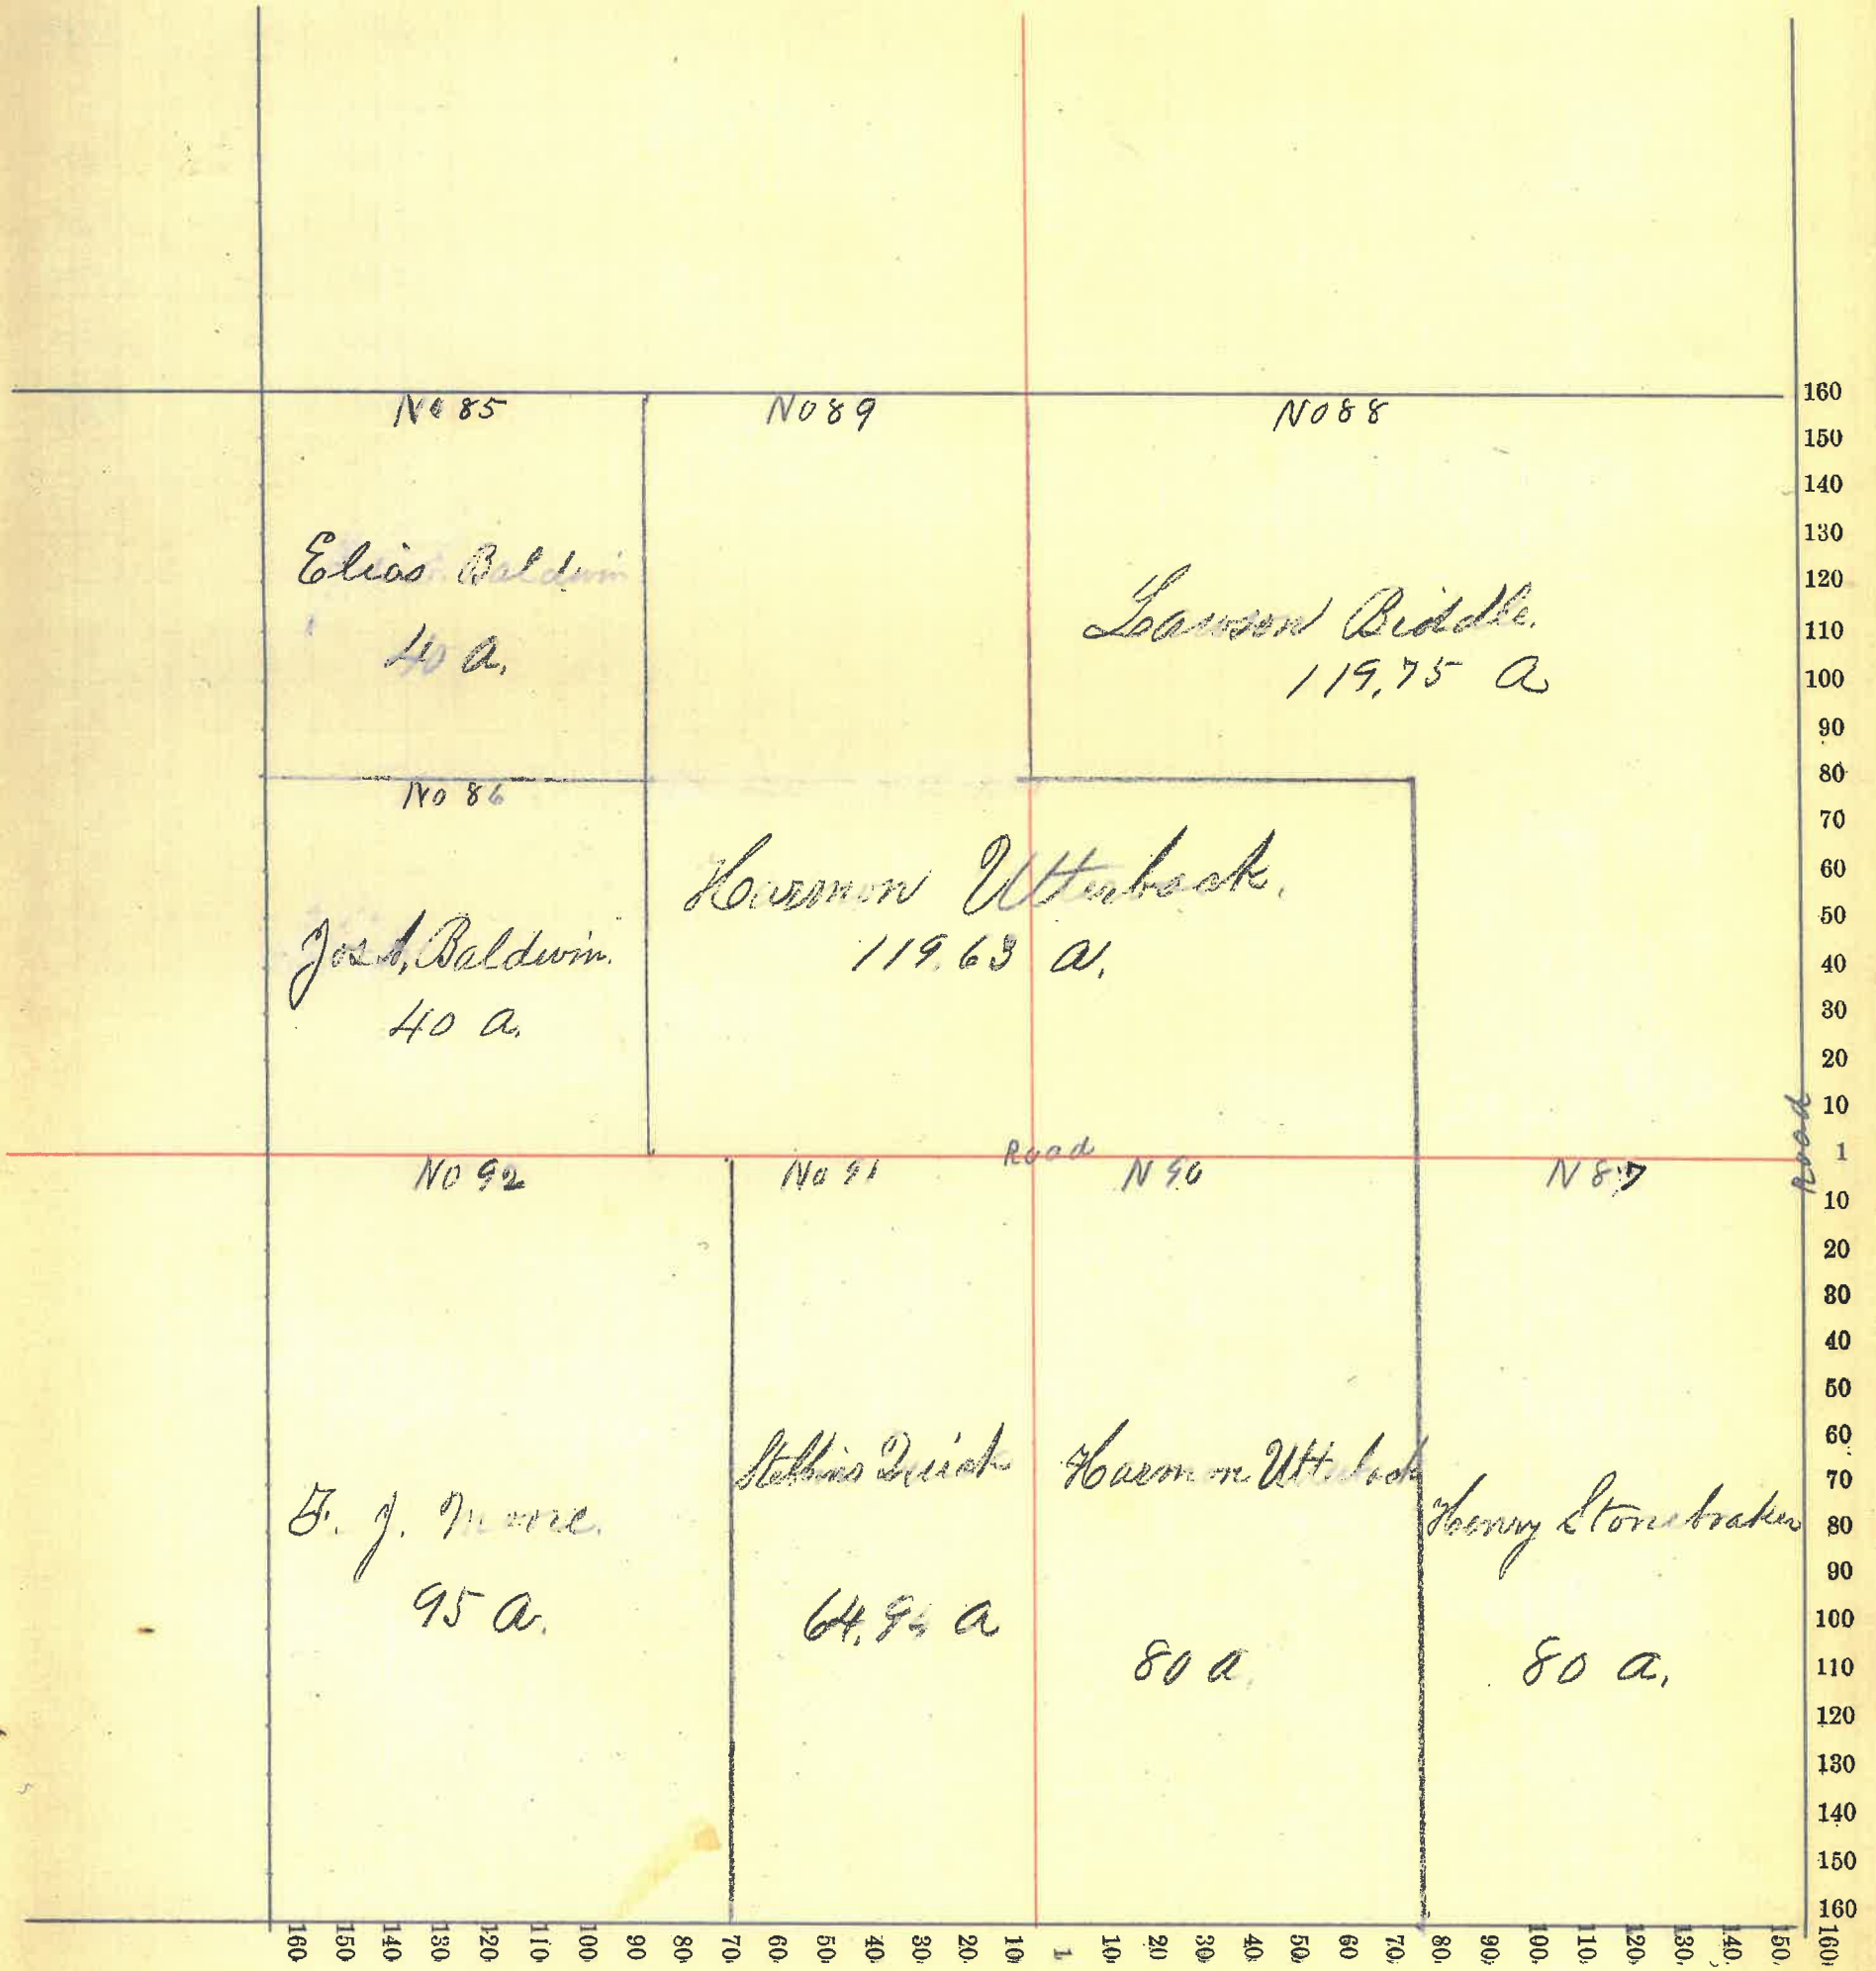 No 85
No 89
No 88
Elias Baldwin
40 A.
Lawson Biddle.
119.75 A
No 86
Harmon Utterback.
119.63 A.
Jos Baldwin.
40 A.
Road
Road
No 92
No 91
N 90
N 87
F. J. Moore.
95 A.
Stebbins
64.9 A
Harmon Utterback
80 A
Henry Stonebraker
80 A.
160
150
140
130
120
110
100
90
80
70
60
50
40
30
20
10
1
10
20
30
40
50
60
70
80
90
100
110
120
130
140
150
160
160 150 140 130 120 110 100 90 80 70 60 50 40 30 20 10 1 10 20 30 40 50 60 70 80 90 100 110 120 130 140 150 160